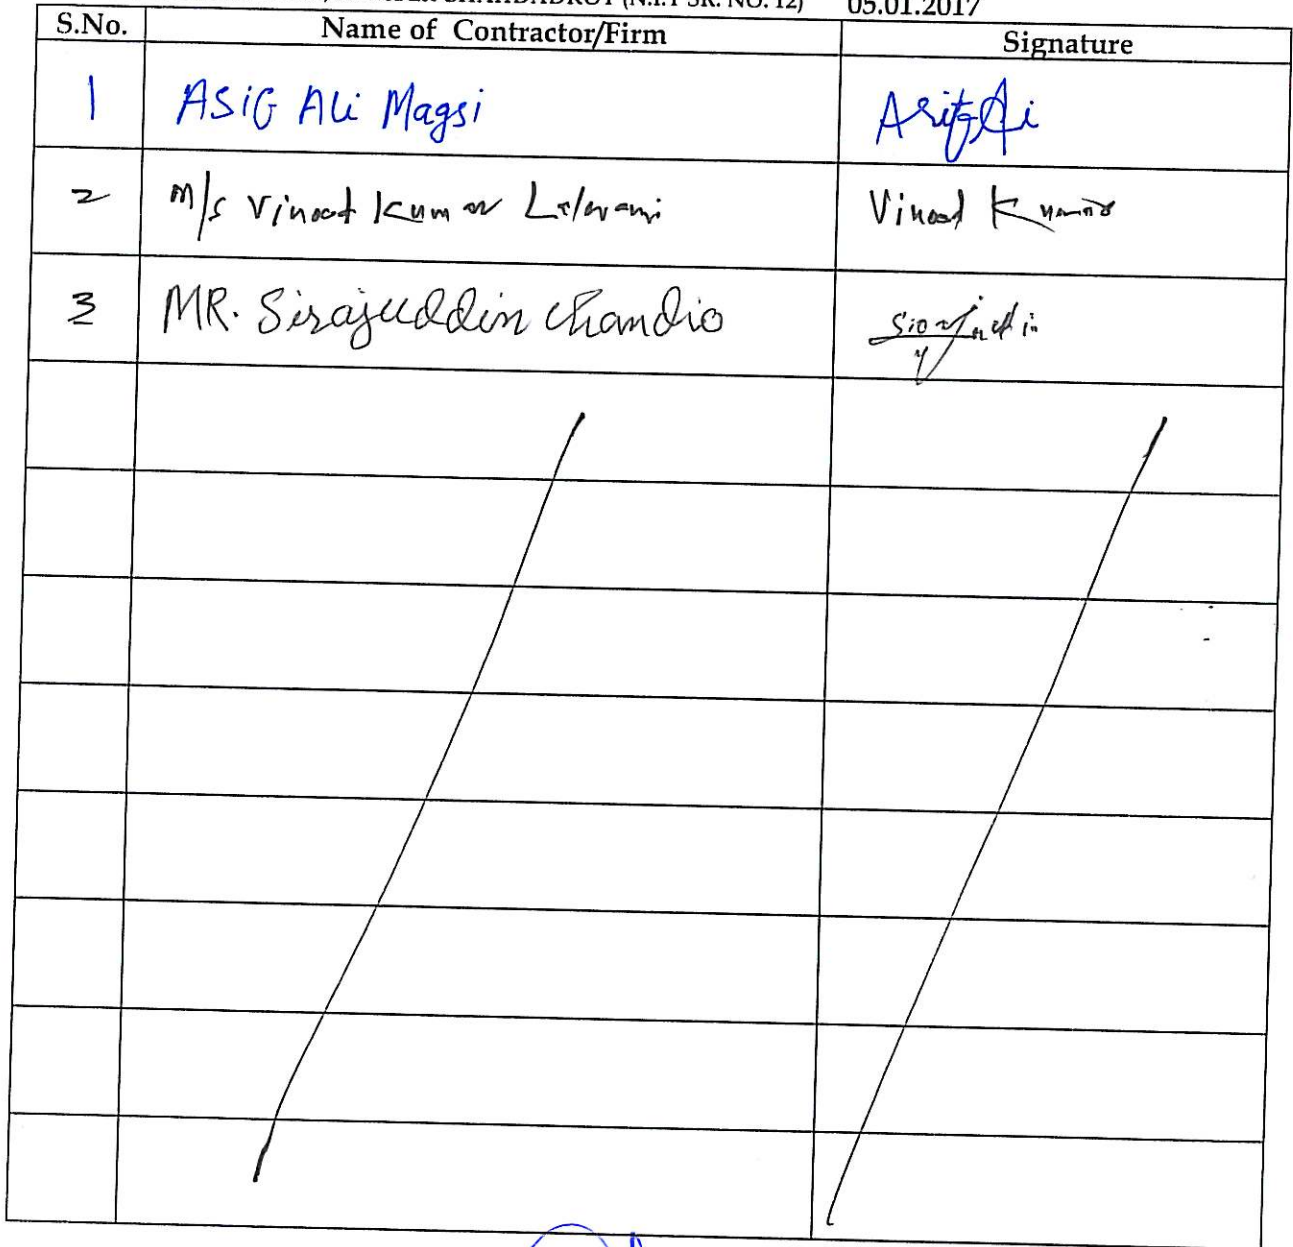 SHAHDADKOT (N.I.T SR. NO. 12) 05.01.2017
S.No. Name of Contractor/Firm Signature
1 ASiG Ali Magsi Asif Ali
2 M/s Vinod Kumar Lalwani Vinod Kumar
3 MR. Sirajuddin Chandio Sirajuddin